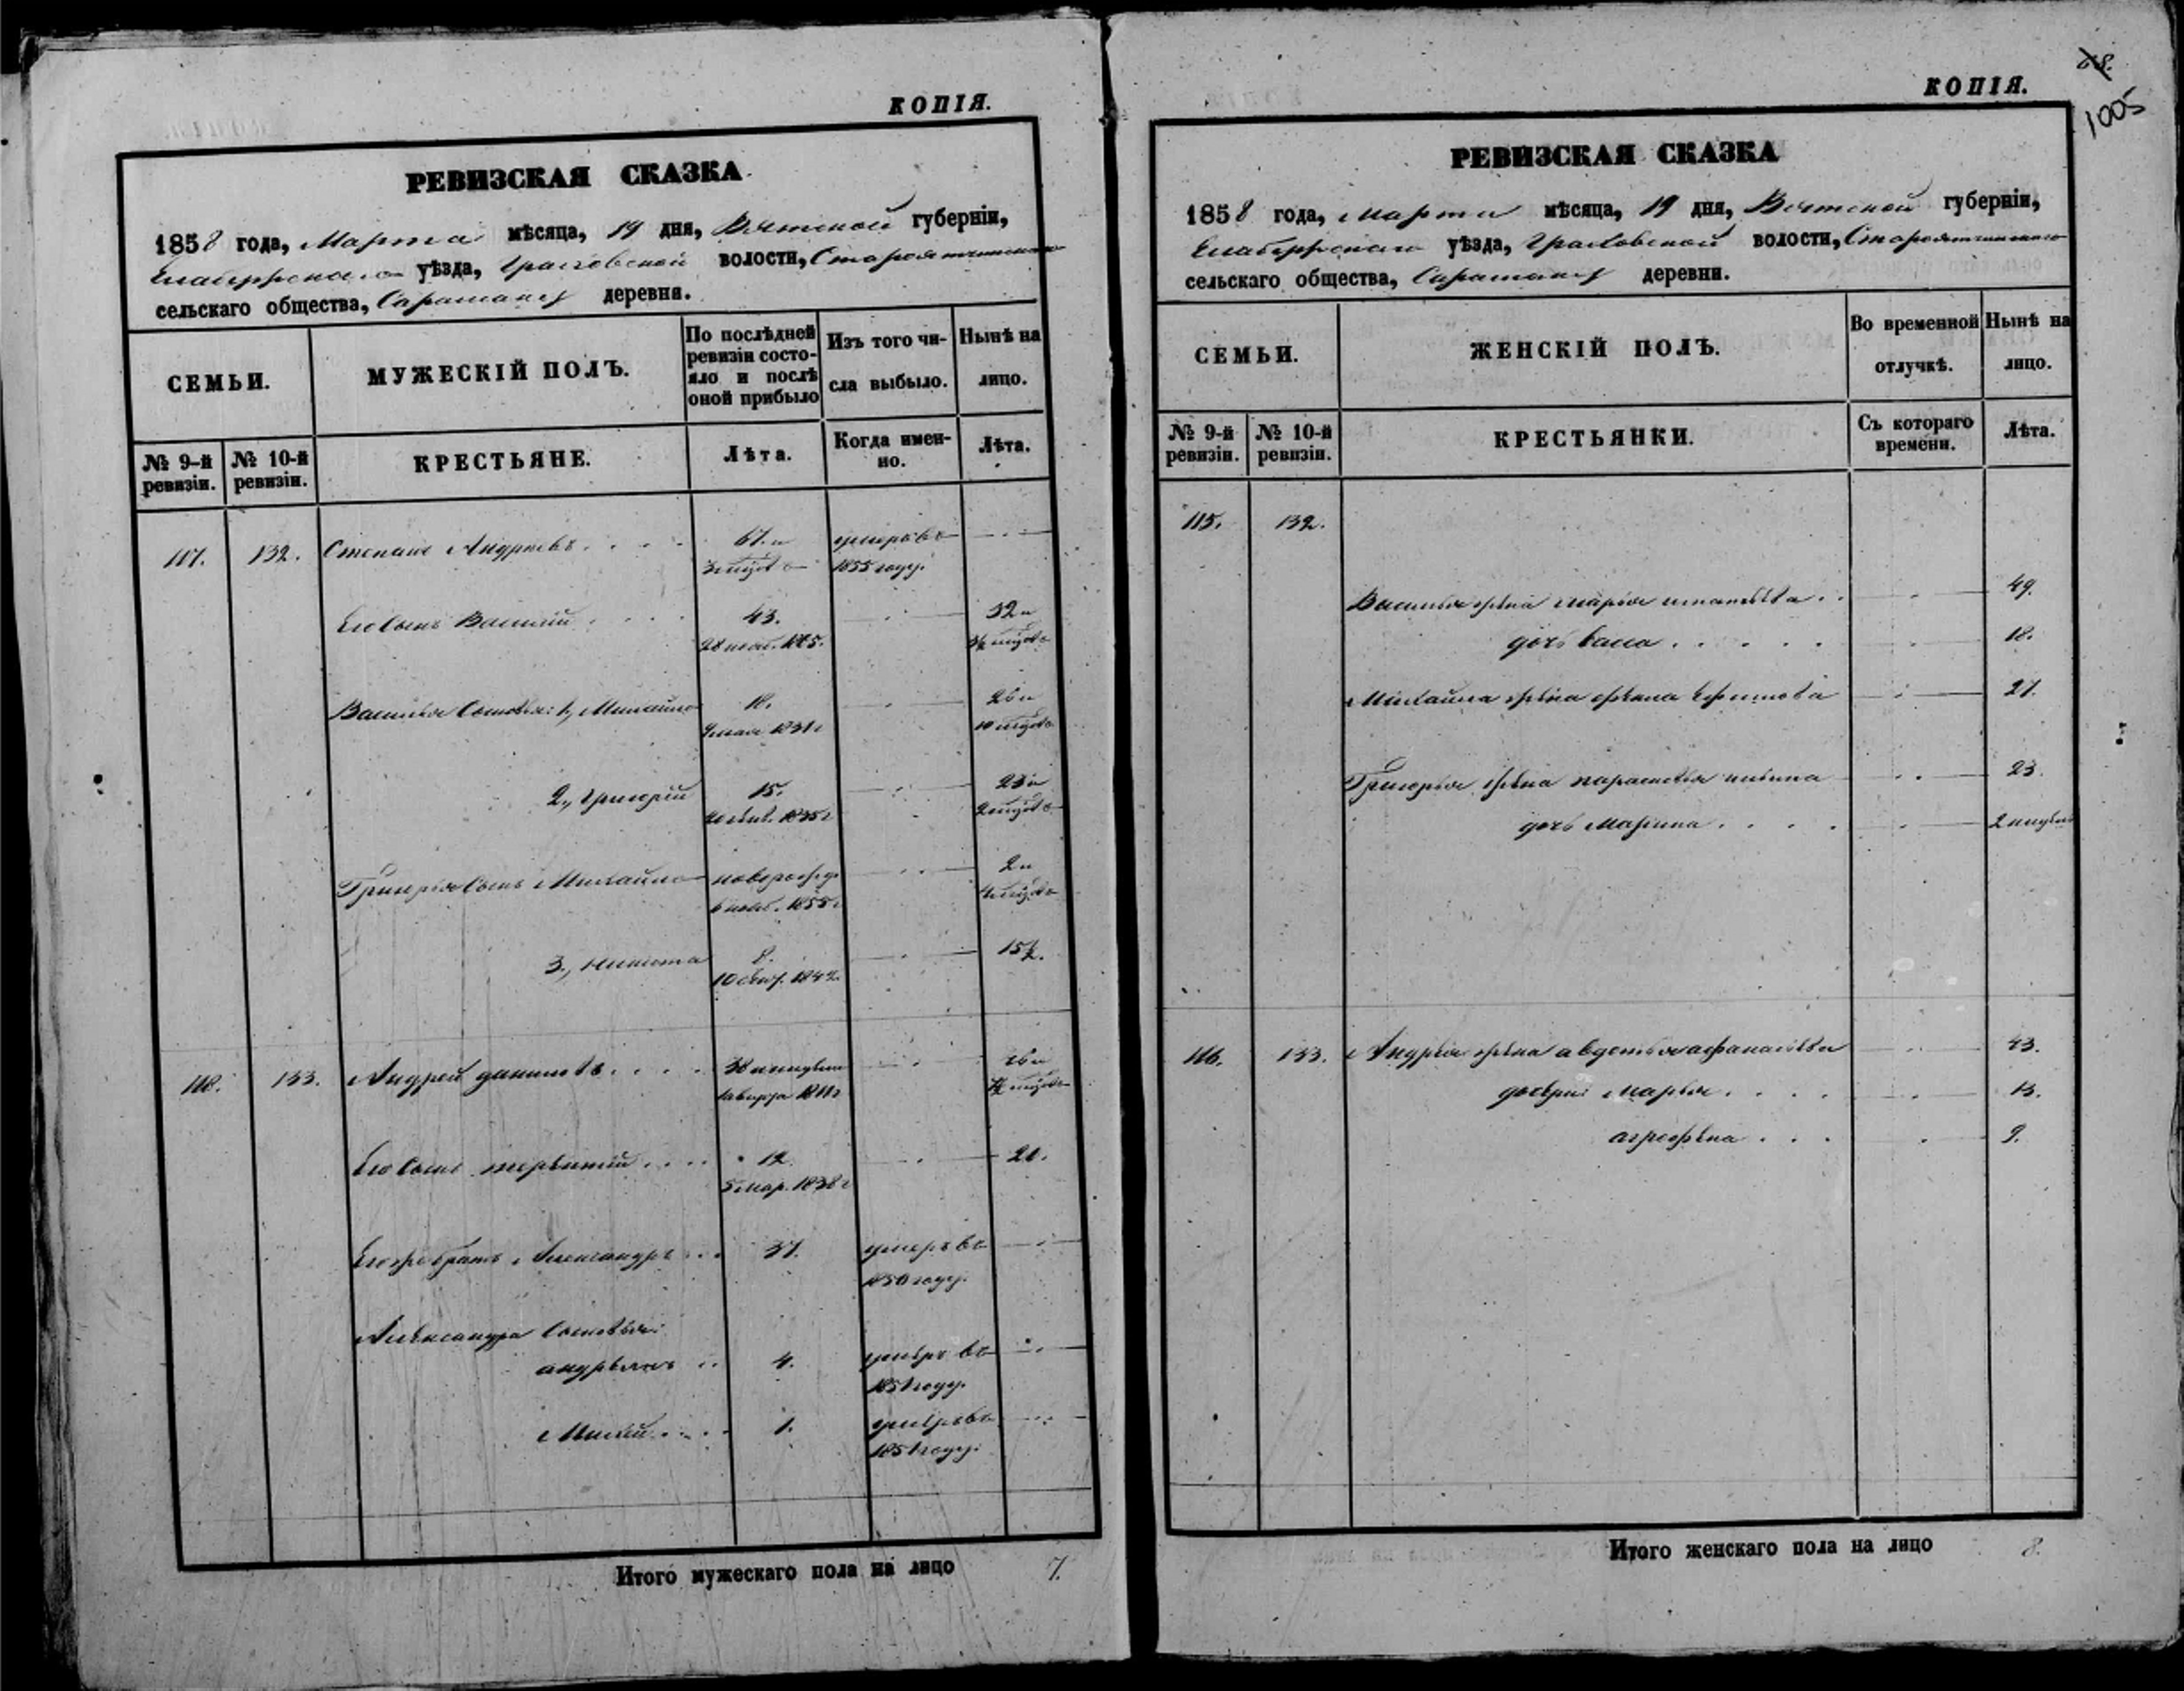 КОПІЯ.
РЕВИЗСКАЯ СКАЗКА
1858 года, Марта мѣсяца, 19 дня, Вятской губерніи,
Елабужскаго уѣзда, Граховской волости,
сельскаго общества, деревни.
СЕМЬИ.
МУЖЕСКІЙ ПОЛЪ.
По послѣдней ревизіи состояло и послѣ оной прибыло
Изъ того числа выбыло.
Нынѣ на лицо.
№ 9-й ревизіи.
№ 10-й ревизіи.
КРЕСТЬЯНЕ.
Лѣта.
Когда именно.
Лѣта.
117. 132. Степанъ Андреевъ 67. и умеръ въ
1855 году.
Его Сынъ Василій 43. 52 и
Васильи Сыновья: 1, Михайло 18. 26 и
1831 г
2, Григорій 15. 23 и
1835 г
Григорья Сынъ Михайло новорожд 2 и
1855 г
3, Никита 8. 15½.
1842
118. 133. Андрей Даниловъ 38
1811 г
Его Сынъ 12. 20.
5 мар. 1838 г
Его же братъ Александръ 37. умеръ въ
1850 году.
Александра Сыновья:
андреянъ 4. умеръ въ
1851 году.
1. умеръ въ
1851 году.
Итого мужескаго пола на лицо 7.
КОПІЯ.
1005
РЕВИЗСКАЯ СКАЗКА
1858 года, Марта мѣсяца, 19 дня, Вятской губерніи,
Елабужскаго уѣзда, Граховской волости,
сельскаго общества, деревни.
СЕМЬИ.
ЖЕНСКІЙ ПОЛЪ.
Во временной отлучкѣ.
Нынѣ на лицо.
№ 9-й ревизіи.
№ 10-й ревизіи.
КРЕСТЬЯНКИ.
Съ котораго времени.
Лѣта.
115. 132.
Василья жена Марія 49.
дочь 18.
Михайла жена Ефимова 27.
Григорья жена парасковья 23.
дочь Марина 2
116. 133. Андрея жена авдотья афанасьева 43.
дочери Марья 13.
аграфена 9.
Итого женскаго пола на лицо 8.